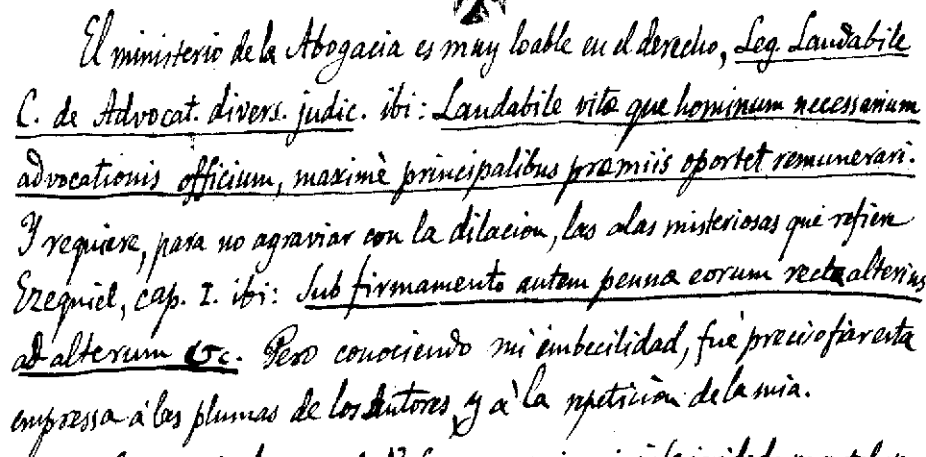 El ministerio de la Abogacia es muy loable en el derecho, Leg. Laudabile
C. de Advocat. divers. judic. ibi: Laudabile vitæ que hominum necessarium
advocationis officium, maximè principalibus præmiis oportet remunerari.
Y requiere, para no agraviar con la dilacion, las alas misteriosas que refiere
Ezequiel, cap. I. ibi: Sub firmamento autem pennæ eorum rectæ alterius
ad alterum &c. Pero conociendo mi embecilidad, fué preciso fiar esta
empressa á las plumas de los Autores, y à la repeticion de la mia.